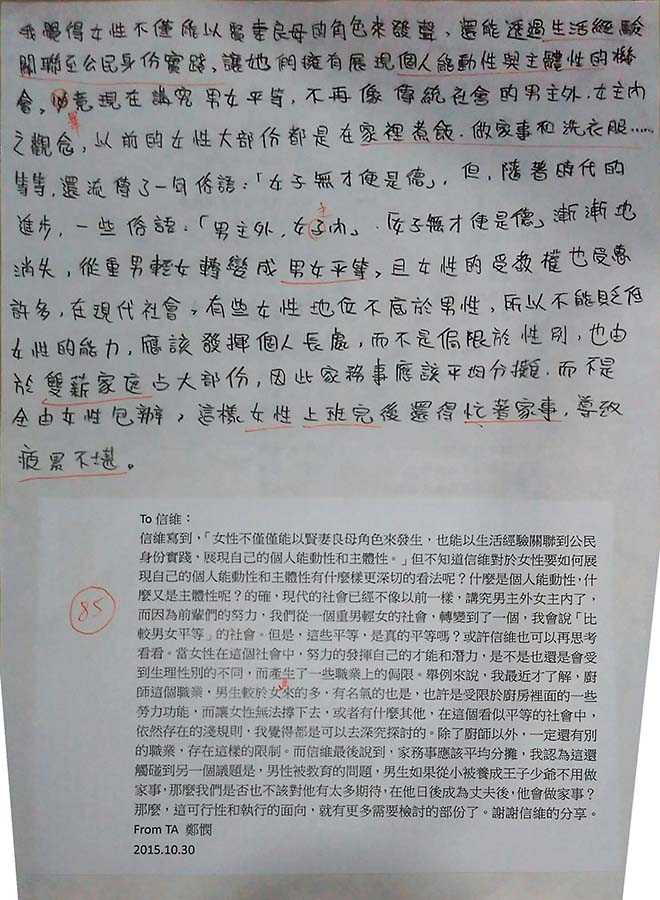 我覺得女性不僅能以賢妻良母的角色來發聲，還能透過生活經驗
關聯至公民身份實踐，讓她們擁有展現個人能動性與主體性的機
會，畢竟現在講究男女平等，不再像傳統社會的男主外.女主內
之觀念，以前的女性大部份都是在家裡煮飯.做家事和洗衣服……
等等，還流傳了一句俗語：「女子無才便是德」，但，隨著時代的
進步，一些俗語：「男主外，女主內」.「女子無才便是德」漸漸地
消失，從重男輕女轉變成男女平等，且女性的受教權也受惠
許多，在現代社會，有些女性地位不底於男性，所以不能貶低
女性的能力，應該發揮個人長處，而不是侷限於性別，也由
於雙薪家庭占大部份，因此家務事應該平均分攤.而不是
全由女性包辦，這樣女性上班完後還得忙著家事，導致
疲累不堪。
To 信維：
信維寫到，「女性不僅僅能以賢妻良母角色來發生，也能以生活經驗關聯到公民
身份實踐，展現自己的個人能動性和主體性。」但不知道信維對於女性要如何展
現自己的個人能動性和主體性有什麼樣更深切的看法呢？什麼是個人能動性，什
麼又是主體性呢？的確，現代的社會已經不像以前一樣，講究男主外女主內了，
而因為前輩們的努力，我們從一個重男輕女的社會，轉變到了一個，我會說「比
較男女平等」的社會。但是，這些平等，是真的平等嗎？或許信維也可以再思考
看看。當女性在這個社會中，努力的發揮自己的才能和潛力，是不是也還是會受
到生理性別的不同，而產生了一些職業上的侷限。舉例來說，我最近才了解，廚
師這個職業，男生較於女來的多，有名氣的也是，也許是受限於廚房裡面的一些
勞力功能，而讓女性無法撐下去，或者有什麼其他，在這個看似平等的社會中，
依然存在的淺規則，我覺得都是可以去深究探討的。除了廚師以外，一定還有別
的職業，存在這樣的限制。而信維最後說到，家務事應該平均分攤，我認為這還
觸碰到另一個議題是，男性被教育的問題，男生如果從小被養成王子少爺不用做
家事，那麼我們是否也不該對他有太多期待，在他日後成為丈夫後，他會做家事？
那麼，這可行性和執行的面向，就有更多需要檢討的部份了。謝謝信維的分享。
From TA 鄭憫
2015.10.30
85